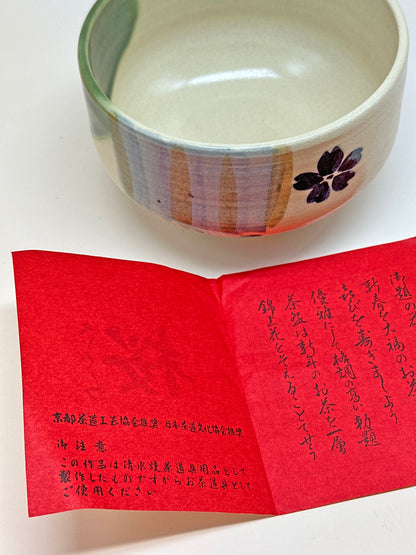 御題の
新春を大福のお
喜びを寿ぎましよう
優雅にして格調の高い勅題
茶盌は新年のお茶を一層
錦上花をそえることでせう
京都茶道工芸協会推奨・日本茶道文化協会推奨
御注意
この作品は清水焼茶道具用品として
製作したものですからお茶道具として
ご使用ください